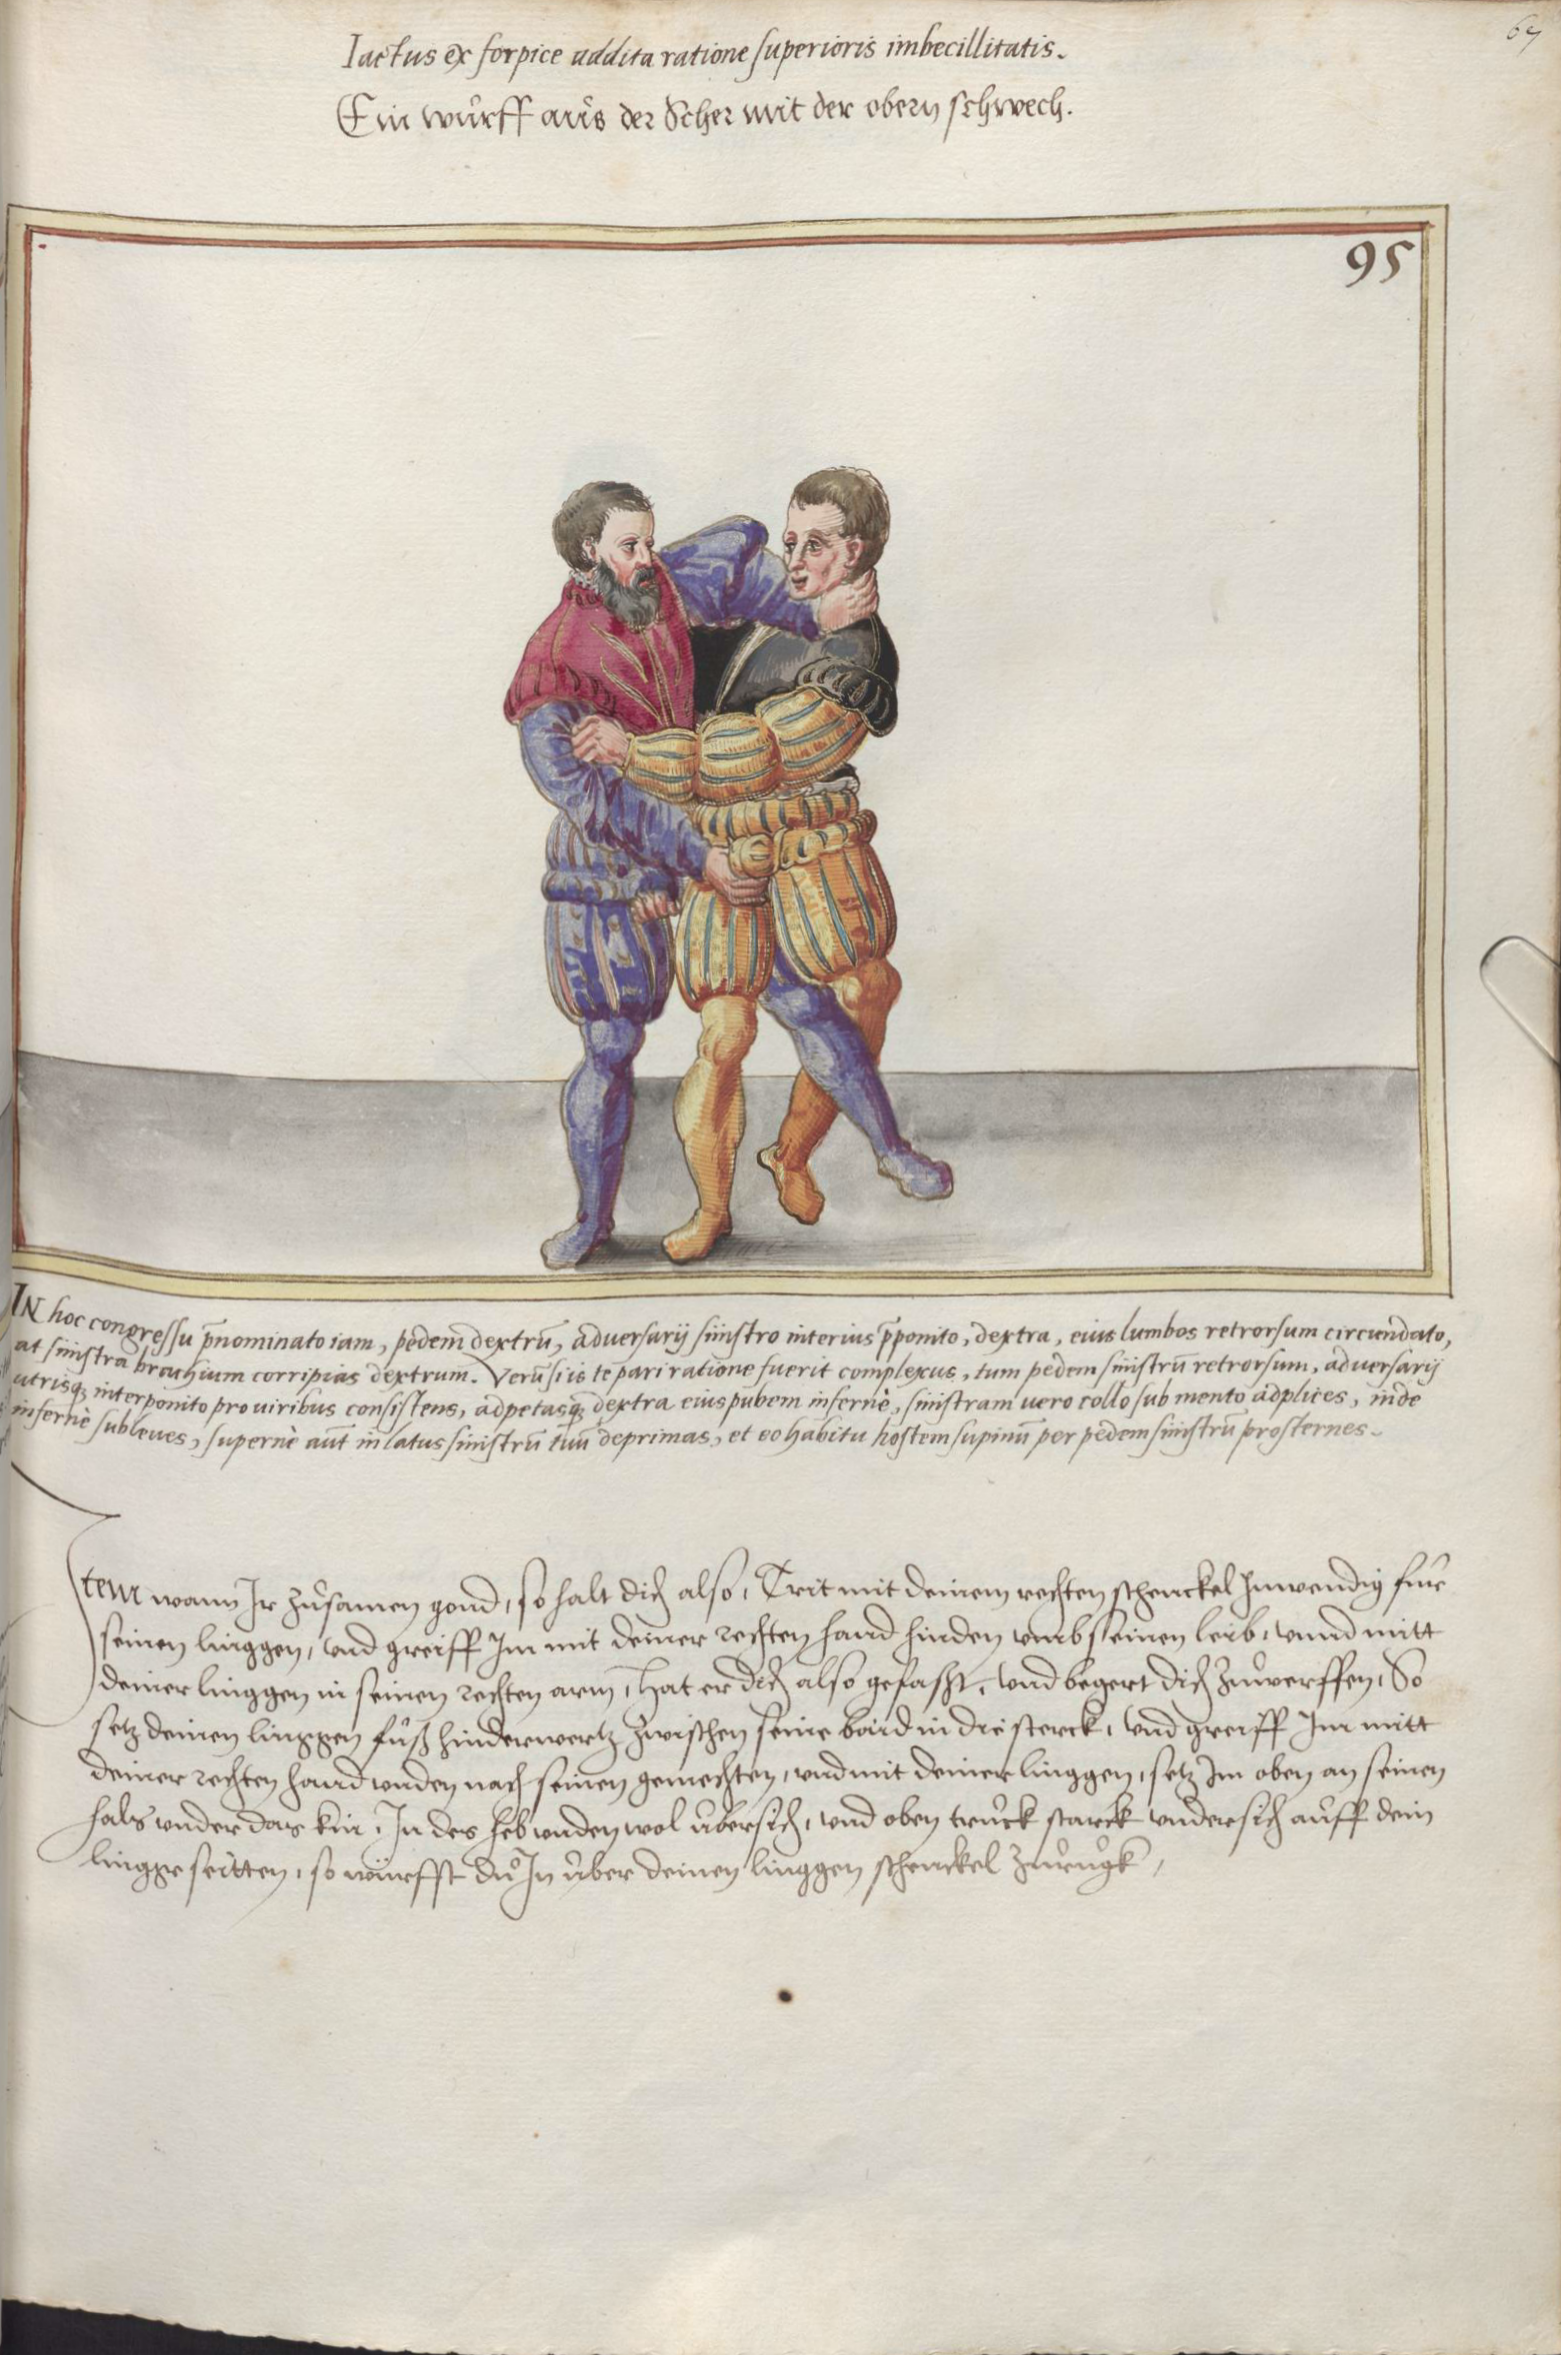 67
Iactus ex forpice addita ratione superioris imbecillitatis.
Ein wůrff aůs der Scher mit der obern schwech.
95
IN hoc congressu p̄nominato iam, pedem dextrū, adversarij sinistro interius p̄ponito, dextra, eius lumbos retrorsum circundato,
at sinistra brachium corripias dextrum. Verū si is te pari ratione fuerit complexus, tum pedem sinistrū retrorsum, adversarij
utrisq; interponito pro viribus consistens, adpetasq; dextra eius pubem infernè, sinistram vero collo sub mento adplices, inde
infernè subleves, supernè aut̄ in latus sinistrū tuū deprimas, et eo habitu hostem supinū per pedem sinistrū prosternes.
Item wann Ir zůsamen gond, so halt dich also, Trit mit deinem rechten schenckel Inwendig für
seinen linggen, vnd greiff Im mit deiner rechten hand hinden vmb seinen leib, vnnd mitt
deiner linggen in seinen rechten arm, Hat er dich also gefasst, vnd begert dich zůwerffen, So
setz deinen linggen fůß hinderwertz zwischen seine baid in die sterck, vnd greiff Im mitt
deiner rechten hand vnden nach seinen gemechten, vnd mit deiner linggen, setz Im oben an seinen
hals vnder das kin, In des heb vnden wol übersich, vnd oben truck starck vndersich auff dein
lingge seitten, so würffst dů In über deinen linggen schenckel zůrugk,